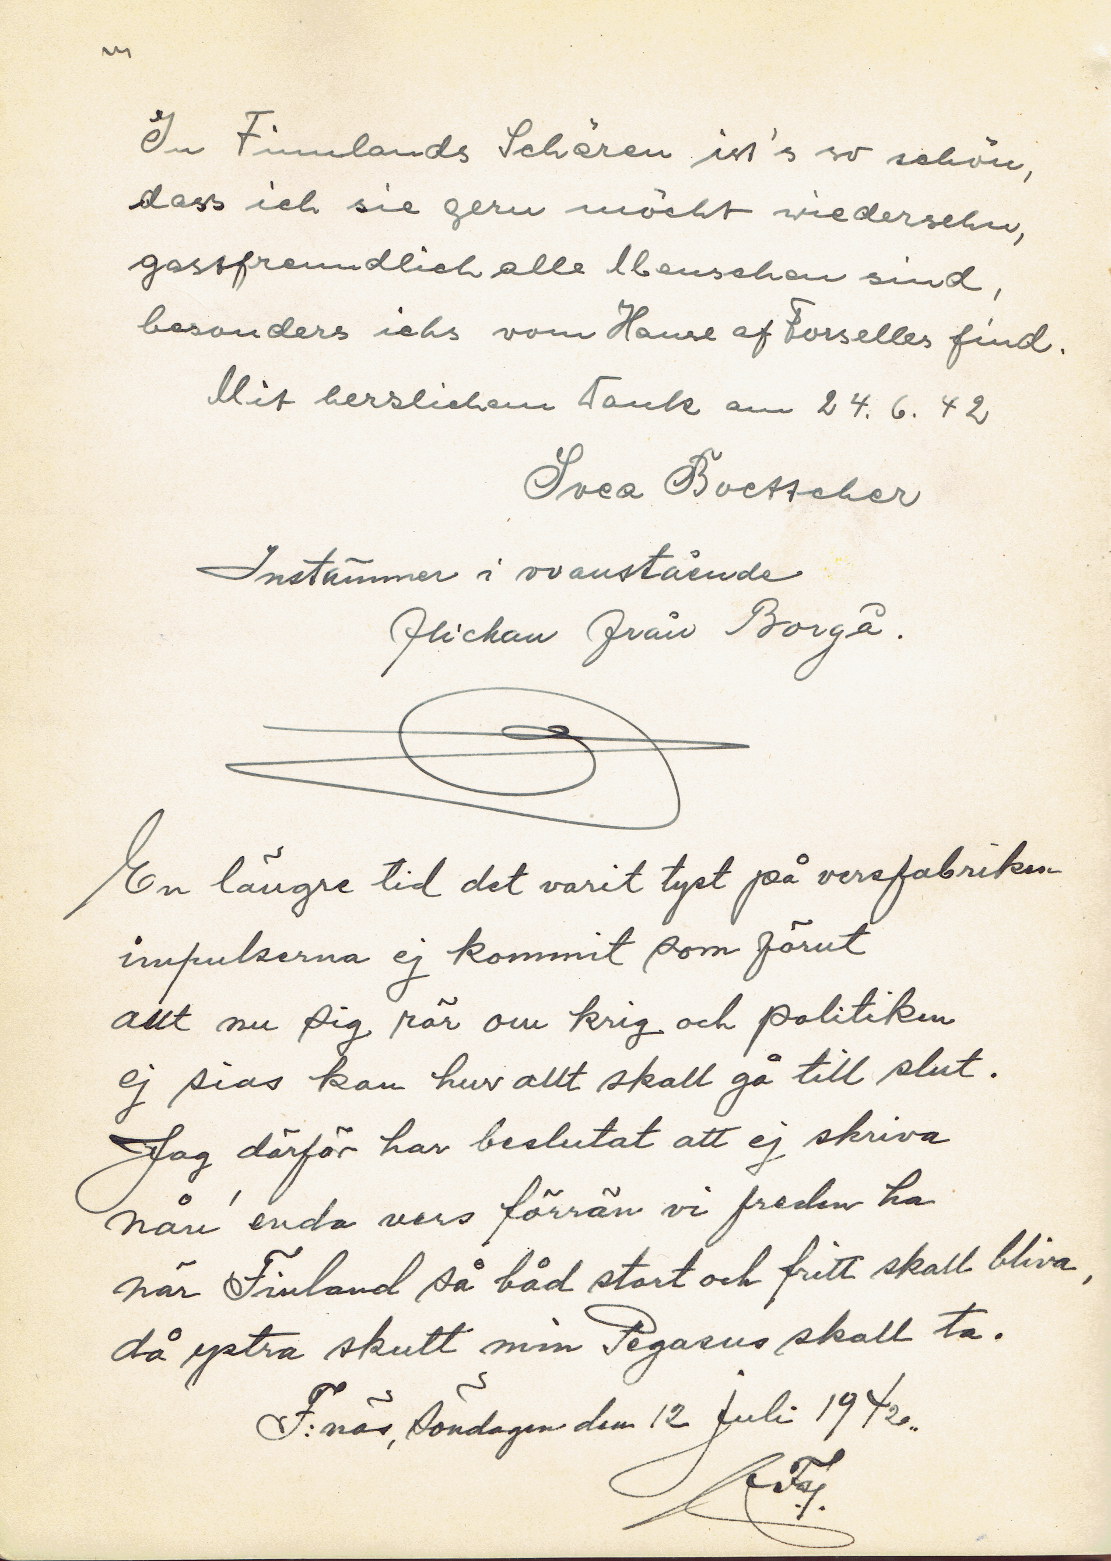 In Finnlands Schären ist's so schön,
dass ich sie gern möcht wiedersehn,
gastfreundlich alle Menschen sind,
besonders ichs vom Hause af Forselles find.
Mit herzlichem Dank am 24. 6. 42
Svea Boettcher
Instämmer i ovanstående
flickan från Borgå.
En längre tid det varit tyst på versfabriken
impulserna ej kommit som förut
allt nu sig rör om krig och politiken
ej sias kan huv allt skall gå till slut.
Jag därför har beslutat att ej skriva
nån' enda vers förrän vi freden ha
när Finland så båd stort och fritt skall bliva,
då ystra skutt min Pegasus skall ta.
F:näs, Söndagen den 12 juli 1942